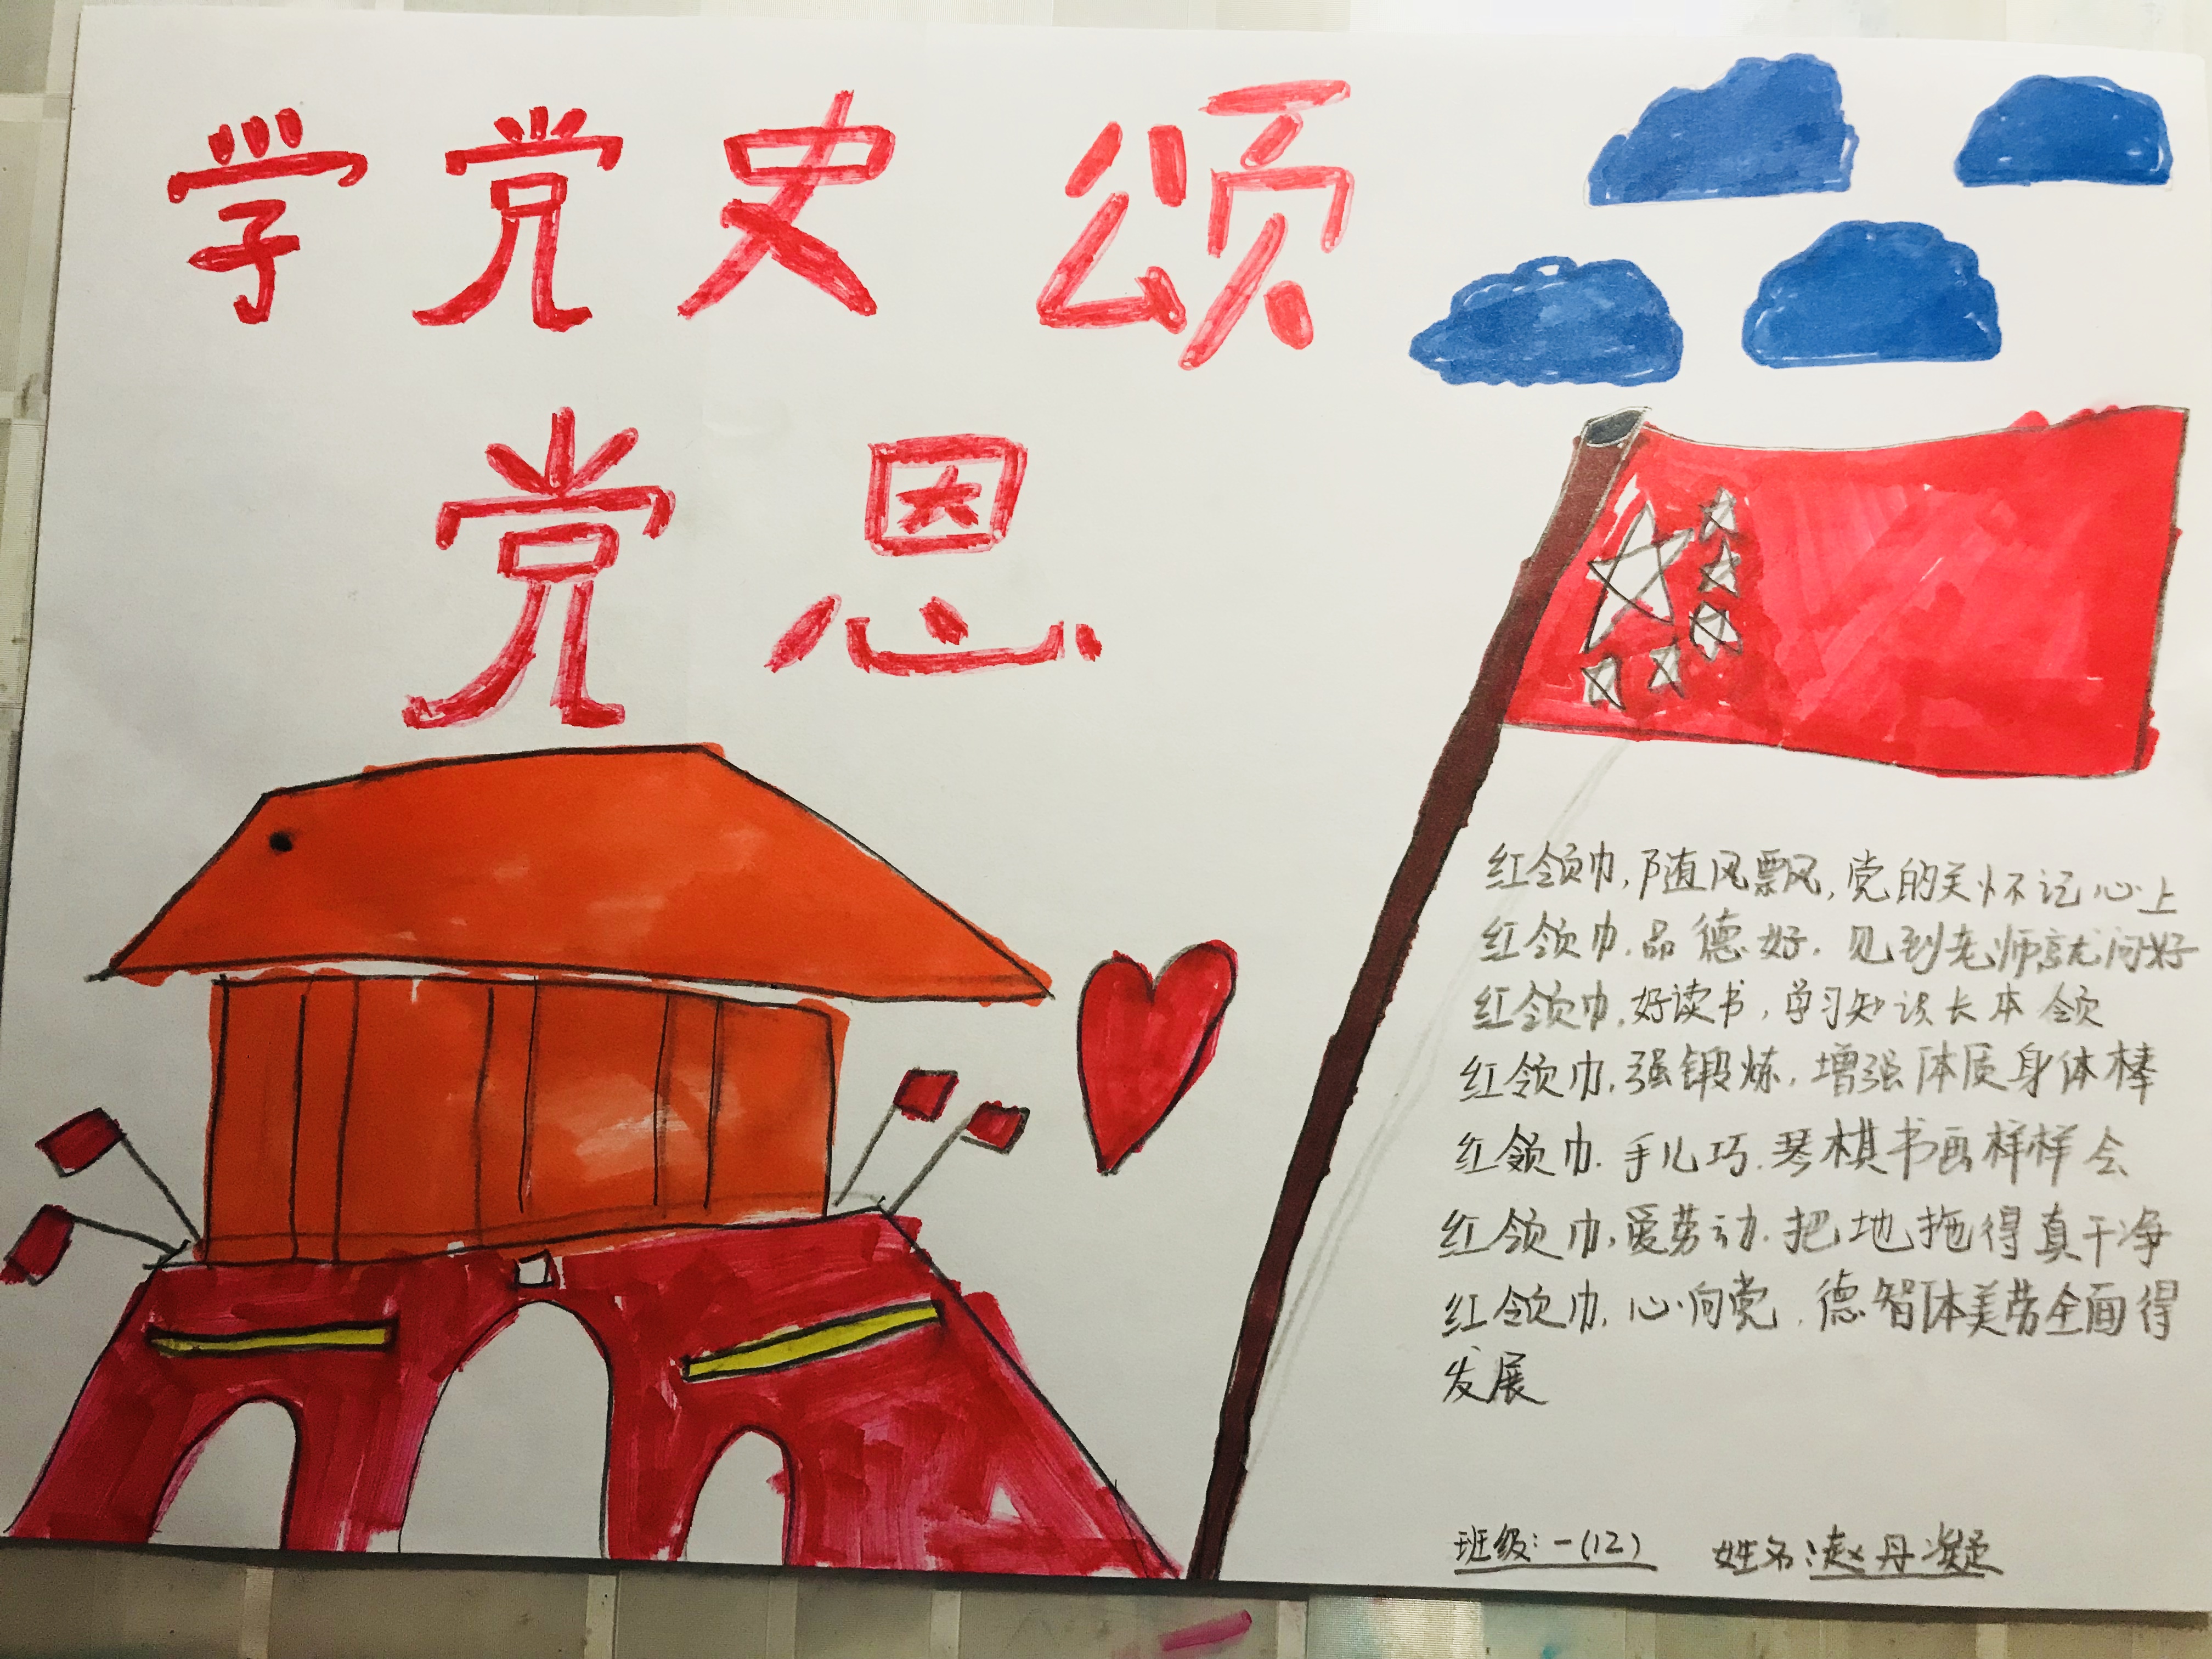 学党史 颂
党恩
红领巾,随风飘,党的关怀记心上
红领巾.品德好.见到老师就问好
红领巾.好读书,学习知识长本领
红领巾.强锻炼.增强体质身体棒
红领巾.手儿巧.琴棋书画样样会
红领巾,爱劳动.把地拖得真干净
红领巾.心向党.德智体美劳全面得
发展
班级:一(12) 姓名:赵丹凝